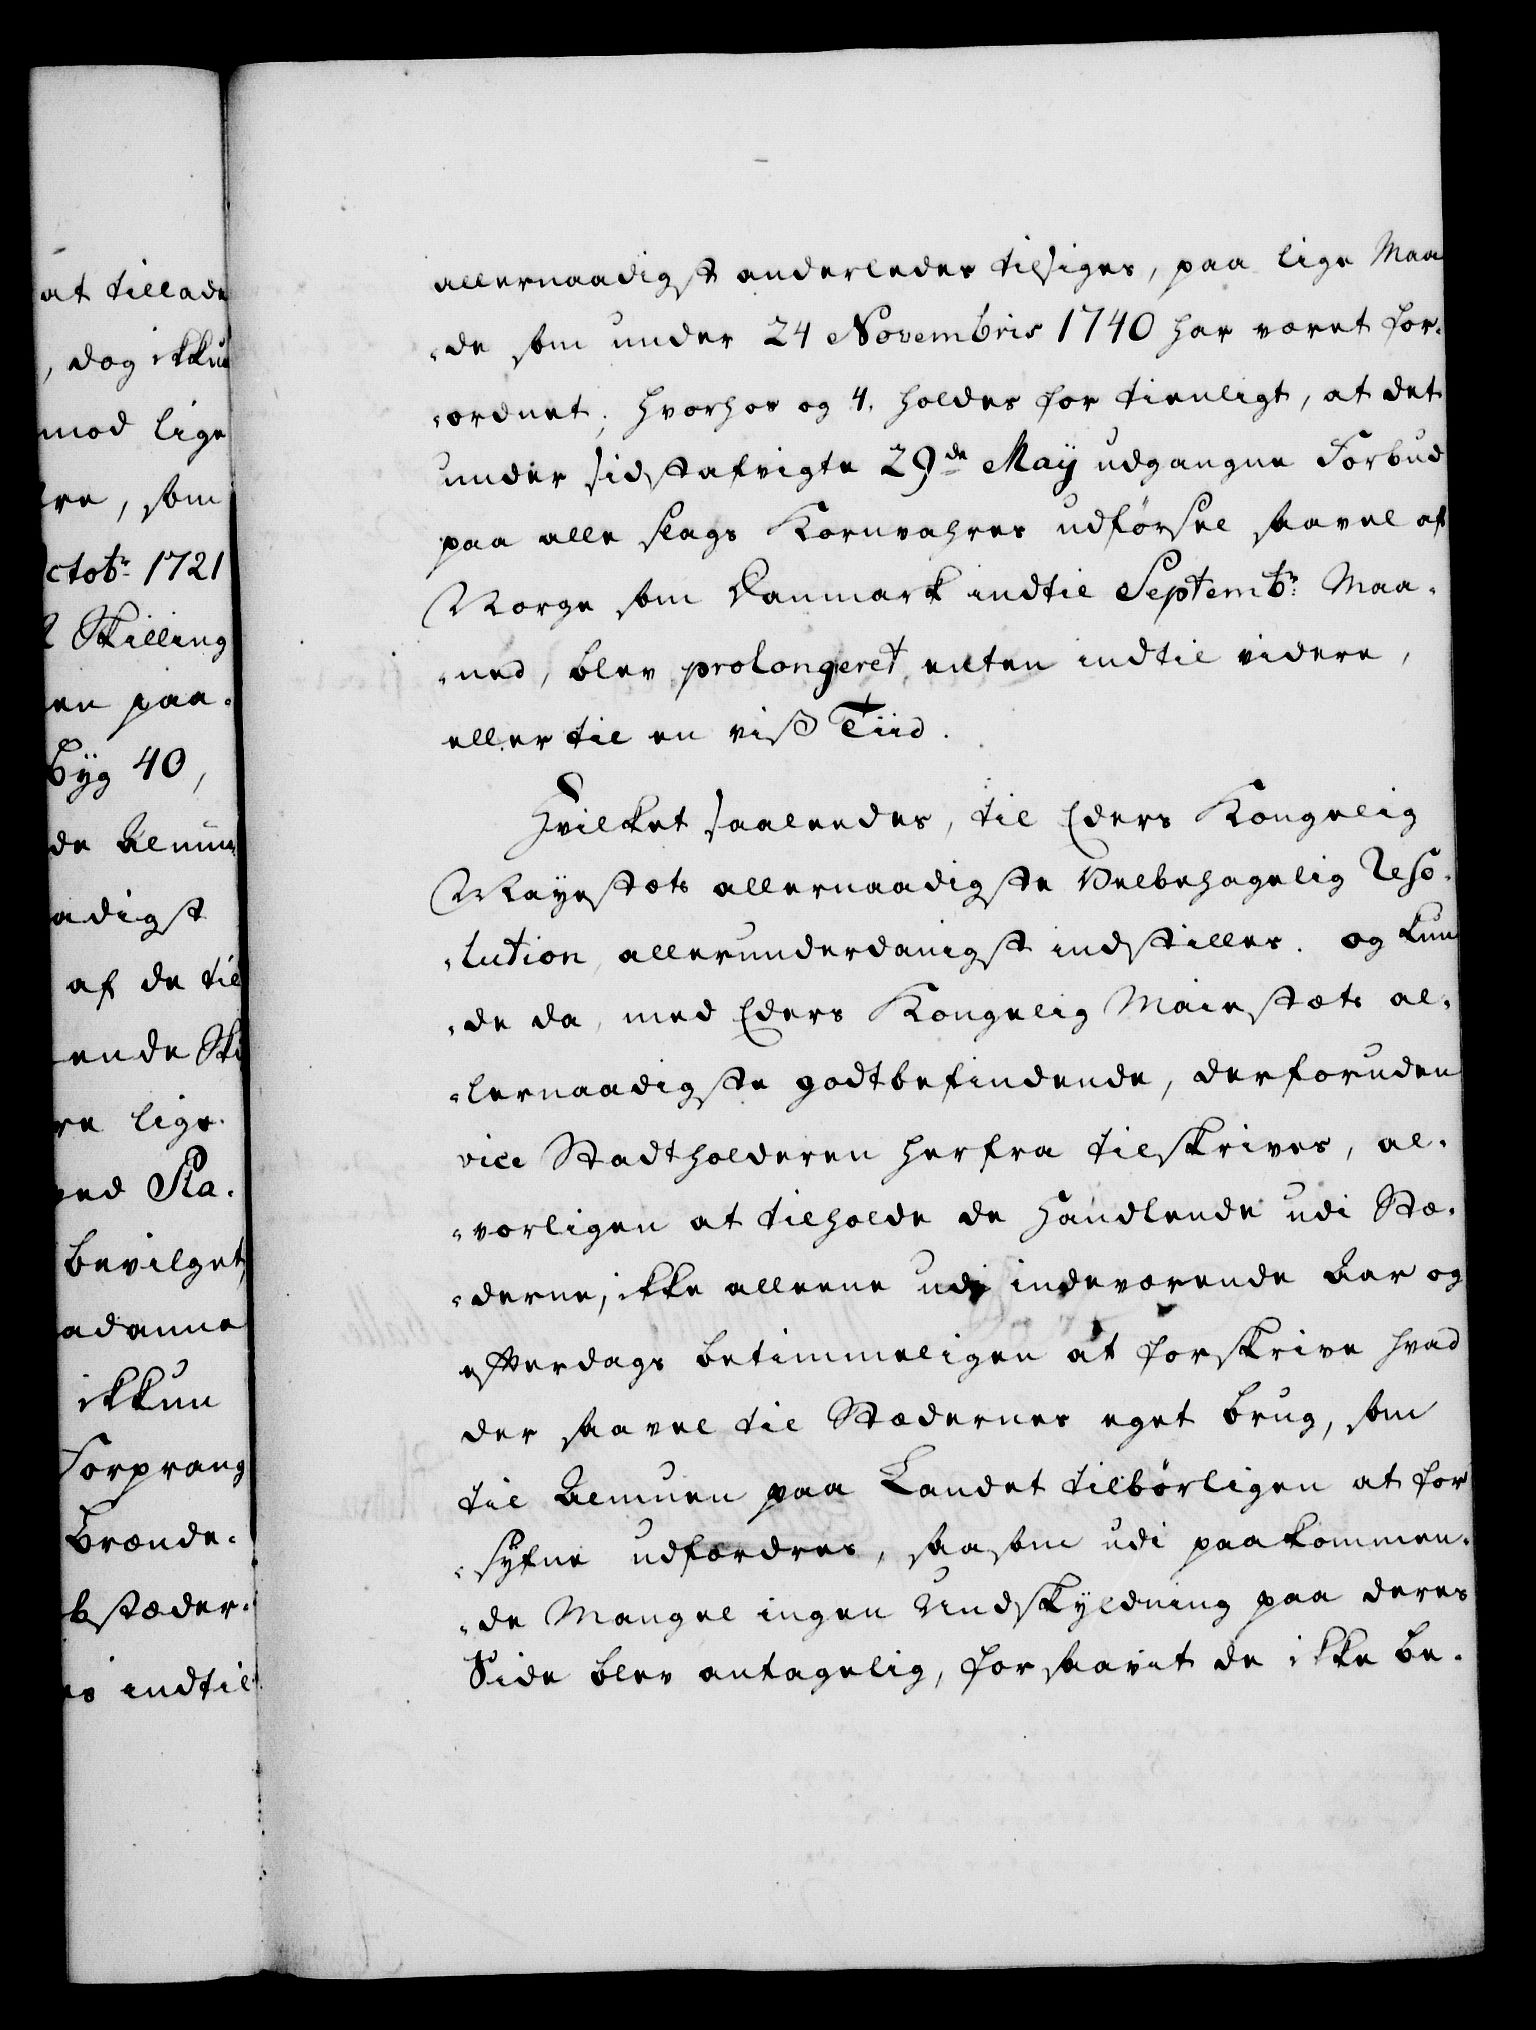 at tillade
, dog ikkun
mod lige
re, som
ctobr. 1721
Skilling
en paa-
Byg 40,
de Almu
adigst
af de til
ende Ski
re lige
ned Ra-
bevilget,
adanne
ikkun
Forprang
Brænde-
bstæder-
es indtil
allernaadigst anderledes tilsiges, paa lige Maa
-de som under 24 Novembris 1740 har været for-
-ordnet; hvorhos og 4. holdes for tienligt, at det
under sidstafvigte 29de Maÿ udgangne Forbud
paa alle slags Kornvahres udførsel saavel af
Norge som Danmark indtil Septembr. Maa-
-ned, blev prolongeret, enten indtil videre,
eller til en viß Tiid.
Hvilket saaleedes, til Eders Kongelig
Mayestæts allernaadigste Velbehagelig Reso-
-lution, allerunderdanigst indstilles. og kun
-de da, med Eders Kongelig Maiestæts al-
-lernaadigste godtbefindende, derforuden
vice Stadtholderen herfra tilskrives, al-
-vorligen at tilholde de Handlende udi Stæ-
-derne, ikke alleene udi indeværende Aar og
efterdags betimmeligen at forskrive hvad
der saavel til Stædernes eget brug, som
til Almuen paa Landet tilbørligen at for
-syfne udfordres, saasom udi paakommen-
-de Mangel ingen Undskyldning paa deres
Side blev antagelig, forsaavit de ikke be-